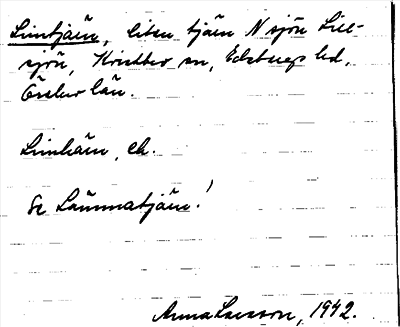 Limtjärn, liten tjärn N sjön Lill-
sjön, Hvidtbo sn, Edsbergs hd,
Örebro län.
Limkärn, ek.
Se Lämmatjärn!
Anna Larsson, 1942.